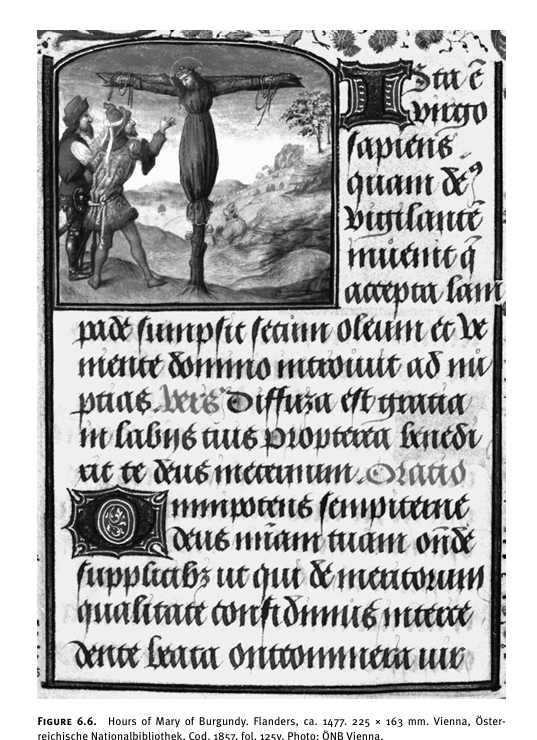 Ista ē
virgo
sapiens
quam dēꝰ
vigilantē
inuenit q̄
accepta lam
pade sumpsit secum oleum et ve
niente domino introiuit ad nu
ptias. Vers Diffuza est gratia
in labijs tuis Propterea benedi
xit te deus in eternum. Oratio
Omnipotens sempiterne
deus mīam tuam onde
supplicibꝫ ut qui de meritorum
qualitate confidimus interce
dente beata onttommera uir
FIGURE 6.6. Hours of Mary of Burgundy. Flanders, ca. 1477. 225 × 163 mm. Vienna, Öster-
reichische Nationalbibliothek, Cod. 1857, fol. 125v. Photo: ÖNB Vienna.